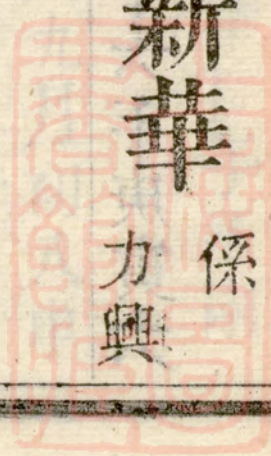 新華
係
力興